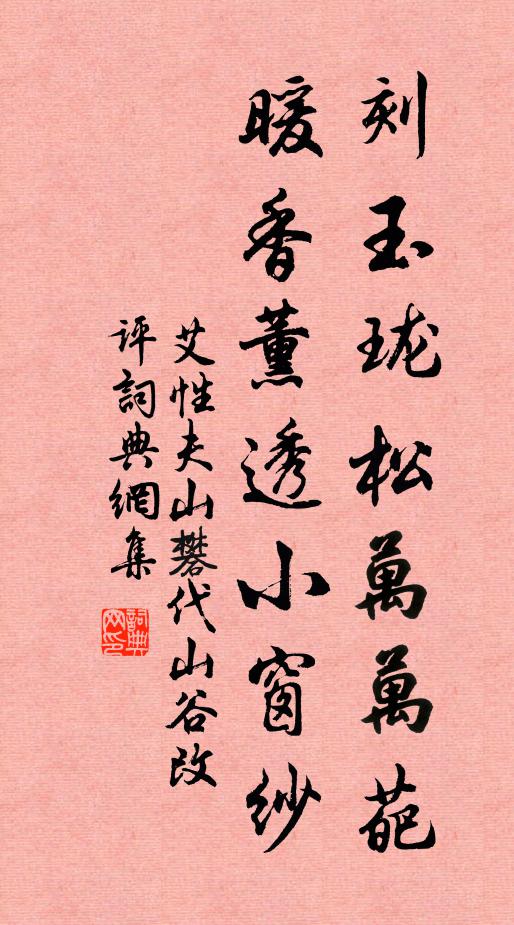 刻玉珑松萬萬葩
暖香薰透小窗紗
艾性夫山礬代山谷改
評詞典網集
詞典網印